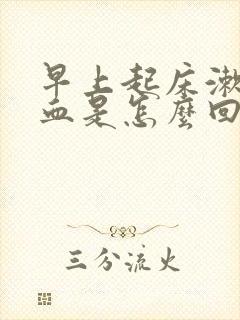 早上起床漱
血是怎麼回
三分流火